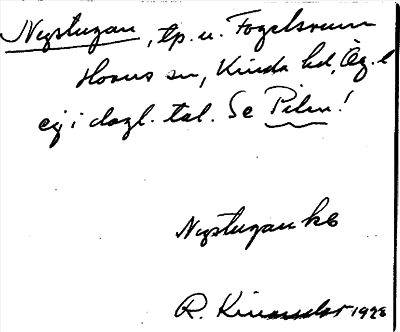 Nystugan, tp. u. Fogelsrum
Horns sn, Kinda hd, Ög. l
ej i dagl. tal. Se Pilen!
Nystugan kb
R. 1928